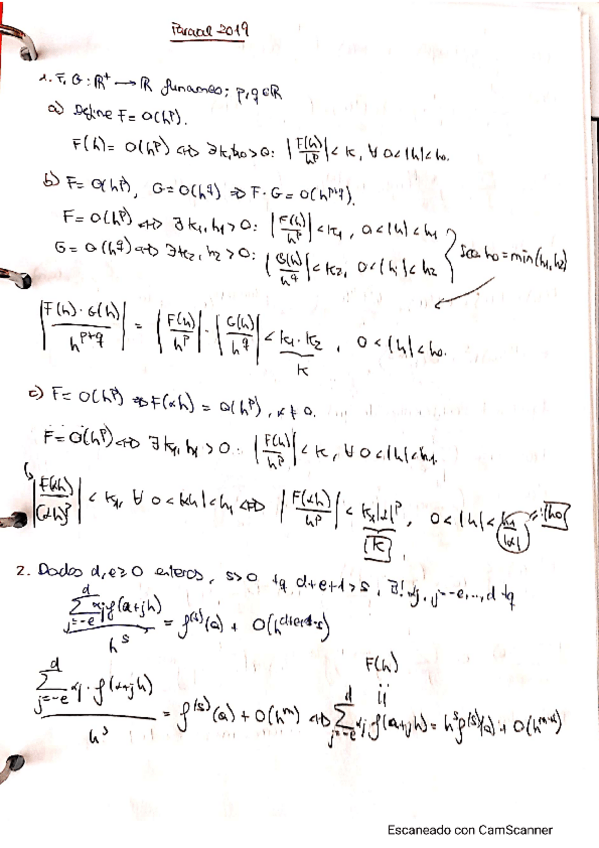 Parcial 2019
1. F, G: ℝ⁺ → ℝ funciones; p, q ∈ ℝ
a) Define F = O(hᵖ).
F(h) = O(hᵖ) ⇔ ∃ k, h₀ > 0: |F(h)/hᵖ| < k, ∀ 0 < |h| < h₀.
b) F = O(hᵖ), G = O(h^q) ⇒ F·G = O(h^{p+q}).
F = O(hᵖ) ⇔ ∃ k₁, h₁ > 0: |F(h)/hᵖ| < k₁, 0 < |h| < h₁
G = O(h^q) ⇔ ∃ k₂, h₂ > 0: |G(h)/h^q| < k₂, 0 < |h| < h₂ } sea h₀ = min(h₁, h₂)
|F(h)·G(h)/h^{p+q}| = |F(h)/hᵖ|·|G(h)/h^q| < k₁·k₂, 0 < |h| < h₀.
k
c) F = O(hᵖ) ⇒ F(αh) = O(hᵖ), α ≠ 0.
F = O(hᵖ) ⇔ ∃ k₁, h₁ > 0: |F(h)/hᵖ| < k, ∀ 0 < |h| < h₁.
|F(αh)/(αh)ᵖ| < k₁, ∀ 0 < |αh| < h₁ ⇔ |F(αh)/hᵖ| < k₁|α|ᵖ, 0 < |h| < h₁/|α| =: h₀
k
2. Dados d, e ≥ 0 enteros, s > 0 tq d+e+1 > s, ∃! αj, j = -e, ..., d tq
∑_{j=-e}^{d} αj f(a+jh) / h^s = f^{(s)}(a) + O(h^{d+e+1-s})
F(h)
∑_{j=-e}^{d} αj · f(a+jh) / h^s = f^{(s)}(a) + O(h^m) ⇔ ∑_{j=-e}^{d} αj f(a+jh) = h^s f^{(s)}(a) + O(h^{m+s})
Escaneado con CamScanner